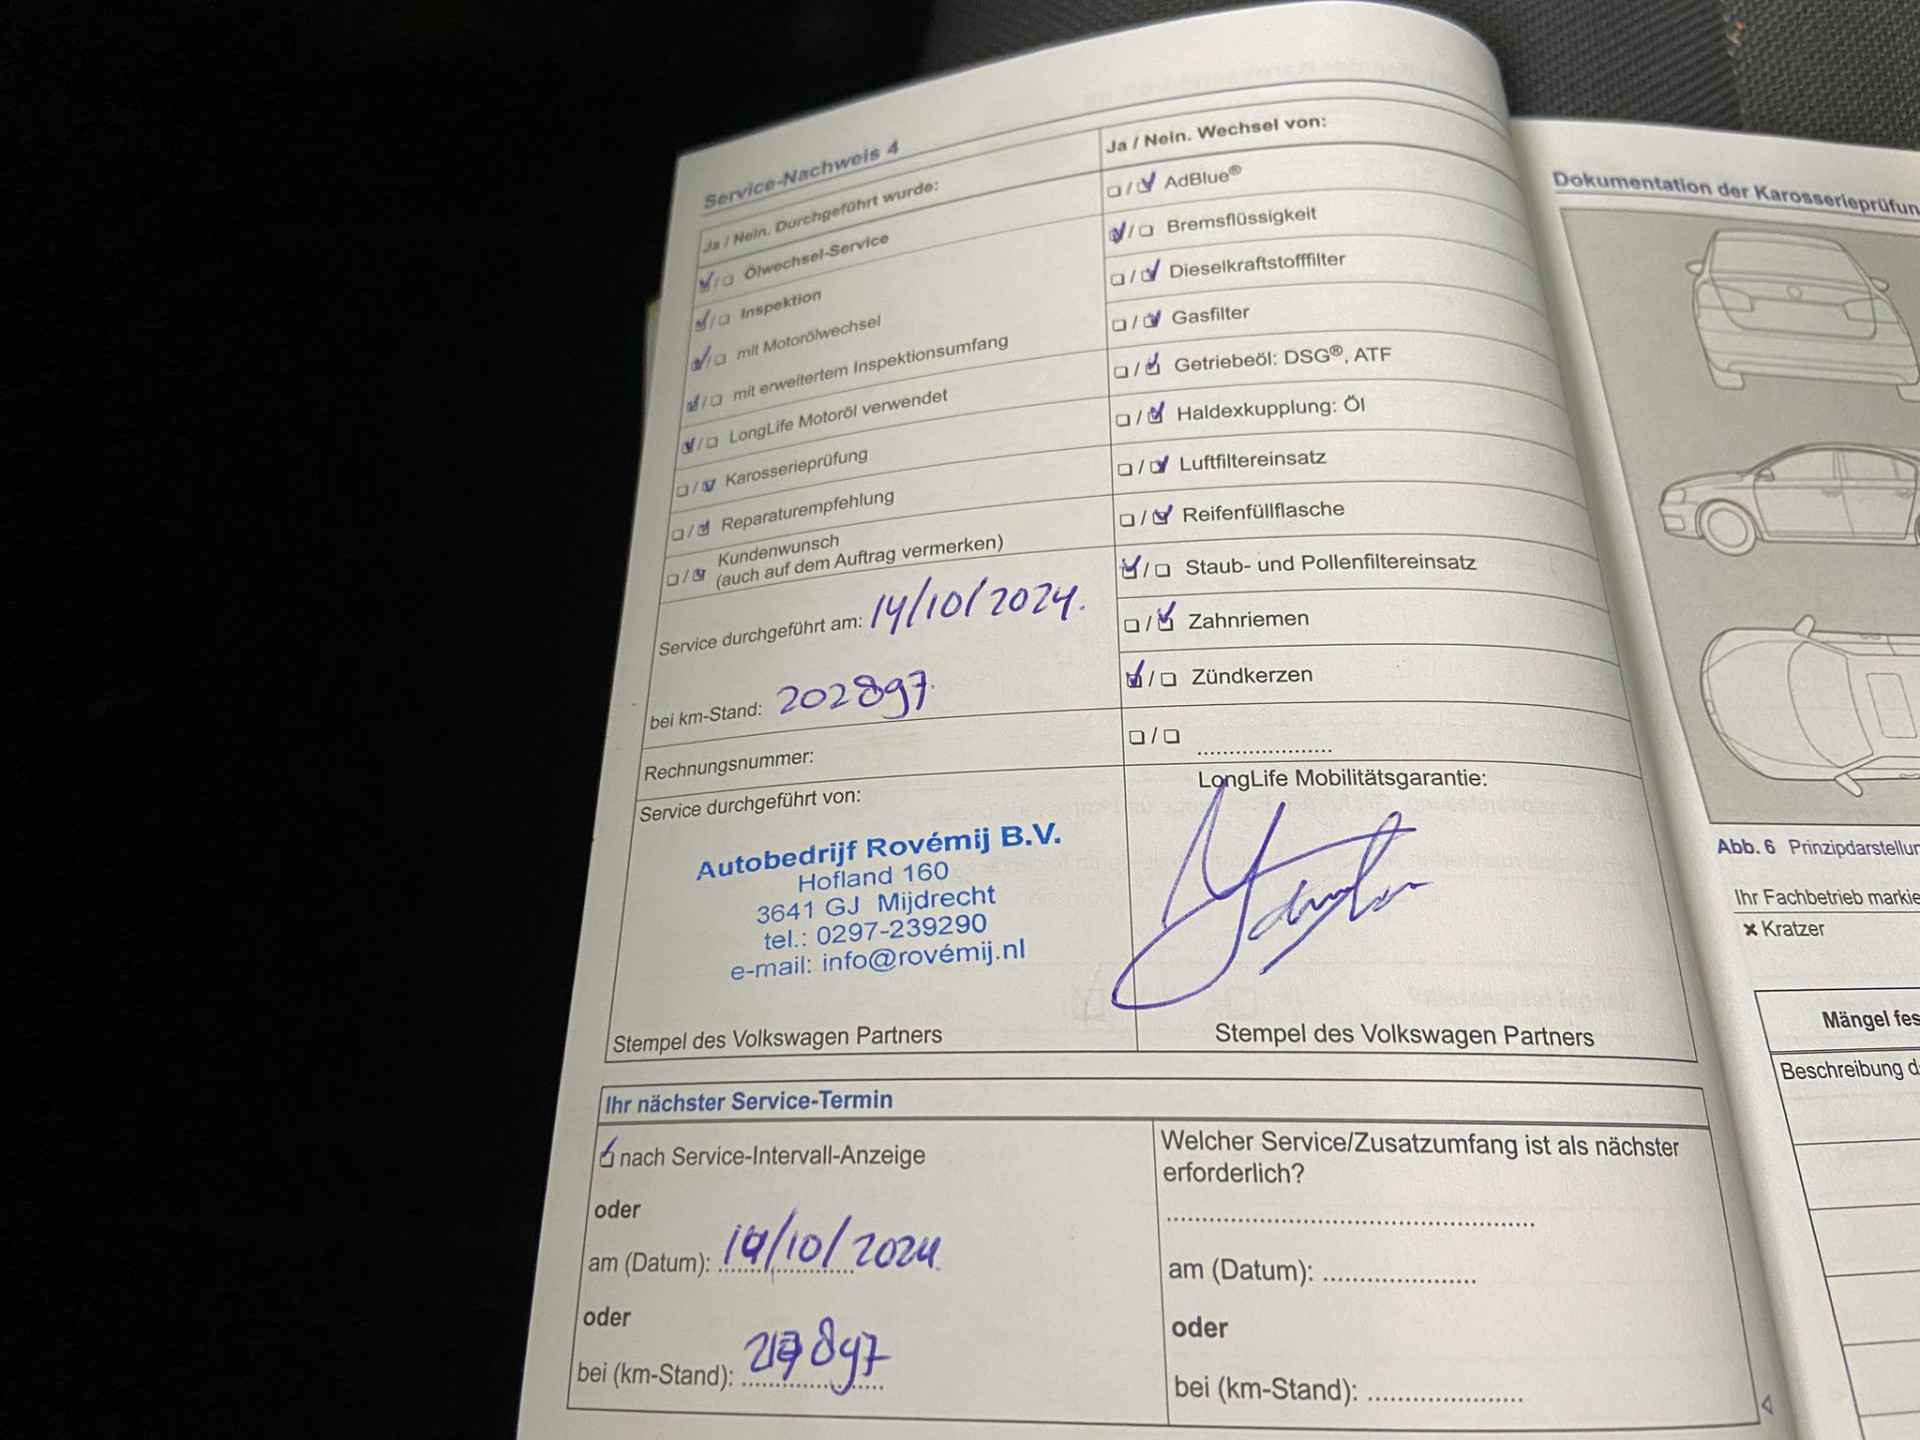 Service-Nachweis 4
Ja / Nein. Durchgeführt wurde:
☑/☐ Ölwechsel-Service
☑/☐ Inspektion
☑/☐ mit Motorölwechsel
☑/☐ mit erweitertem Inspektionsumfang
☑/☐ LongLife Motoröl verwendet
☐/☑ Karosserieprüfung
☐/☑ Reparaturempfehlung
☐/☑ Kundenwunsch
(auch auf dem Auftrag vermerken)
Service durchgeführt am: 14/10/2024.
bei km-Stand: 202897.
Rechnungsnummer:
Service durchgeführt von:
Autobedrijf Rovémij B.V.
Hofland 160
3641 GJ Mijdrecht
tel.: 0297-239290
e-mail: info@rovémij.nl
Stempel des Volkswagen Partners
Ja / Nein. Wechsel von:
☐/☑ AdBlue®
☑/☐ Bremsflüssigkeit
☐/☑ Dieselkraftstofffilter
☐/☑ Gasfilter
☐/☑ Getriebeöl: DSG®, ATF
☐/☑ Haldexkupplung: Öl
☐/☑ Luftfiltereinsatz
☐/☑ Reifenfüllflasche
☑/☐ Staub- und Pollenfiltereinsatz
☐/☑ Zahnriemen
☑/☐ Zündkerzen
☐/☐ ......................
LongLife Mobilitätsgarantie:
Stempel des Volkswagen Partners
Ihr nächster Service-Termin
☑ nach Service-Intervall-Anzeige
oder
am (Datum): 14/10/2024
oder
bei (km-Stand):
Welcher Service/Zusatzumfang ist als nächster
erforderlich?
am (Datum): ......................
oder
bei (km-Stand): ......................
Dokumentation der Karosserieprüfun
Abb. 6 Prinzipdarstellun
Ihr Fachbetrieb markie
✖ Kratzer
Mängel fes
Beschreibung d